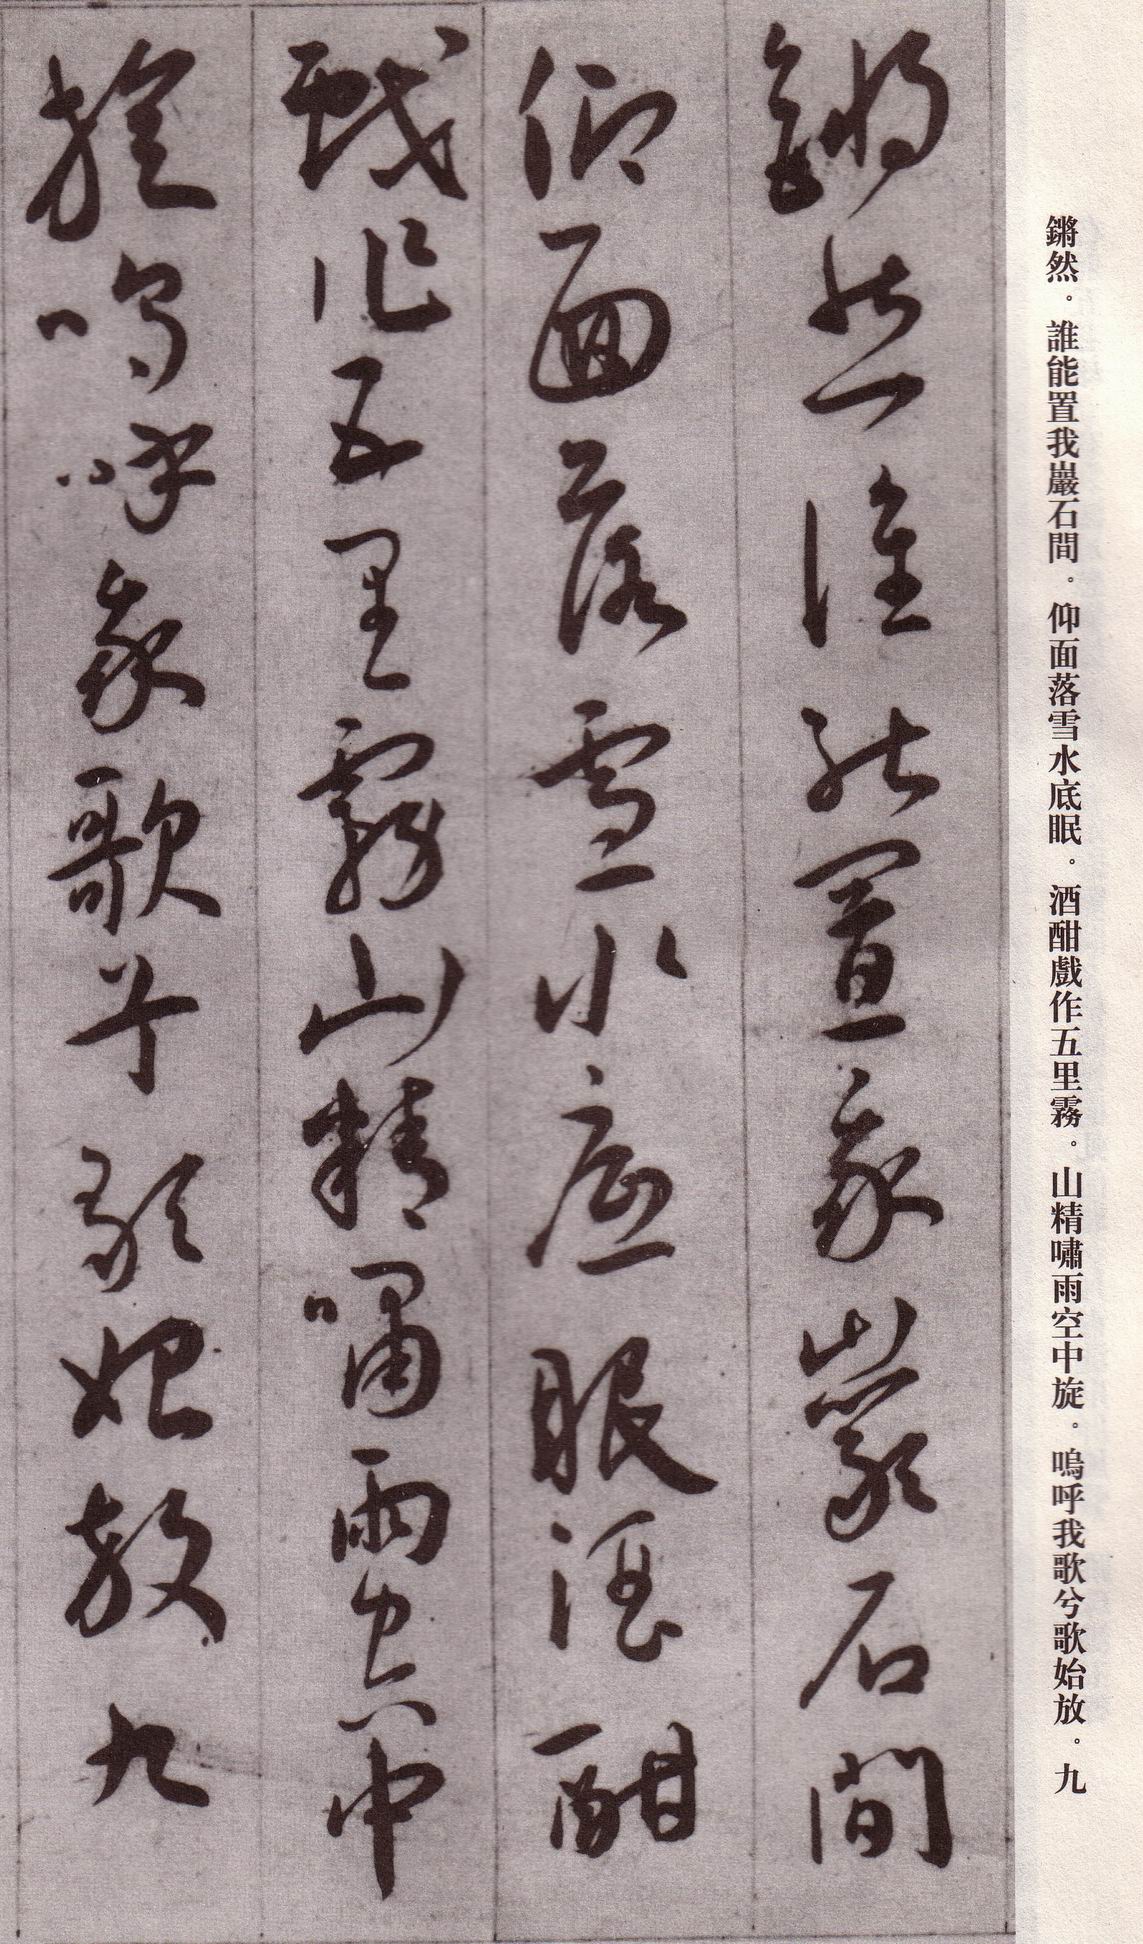 鏘然。誰能置我巖石間。仰面落雪水底眠。酒酣戲作五里霧。山精嘯雨空中旋。嗚呼我歌兮歌始放。九
鏘然誰能置我巖石間
仰面落雪水底眠酒酣
戲作五里霧山精嘯雨空中
旋嗚呼我歌兮歌始放九